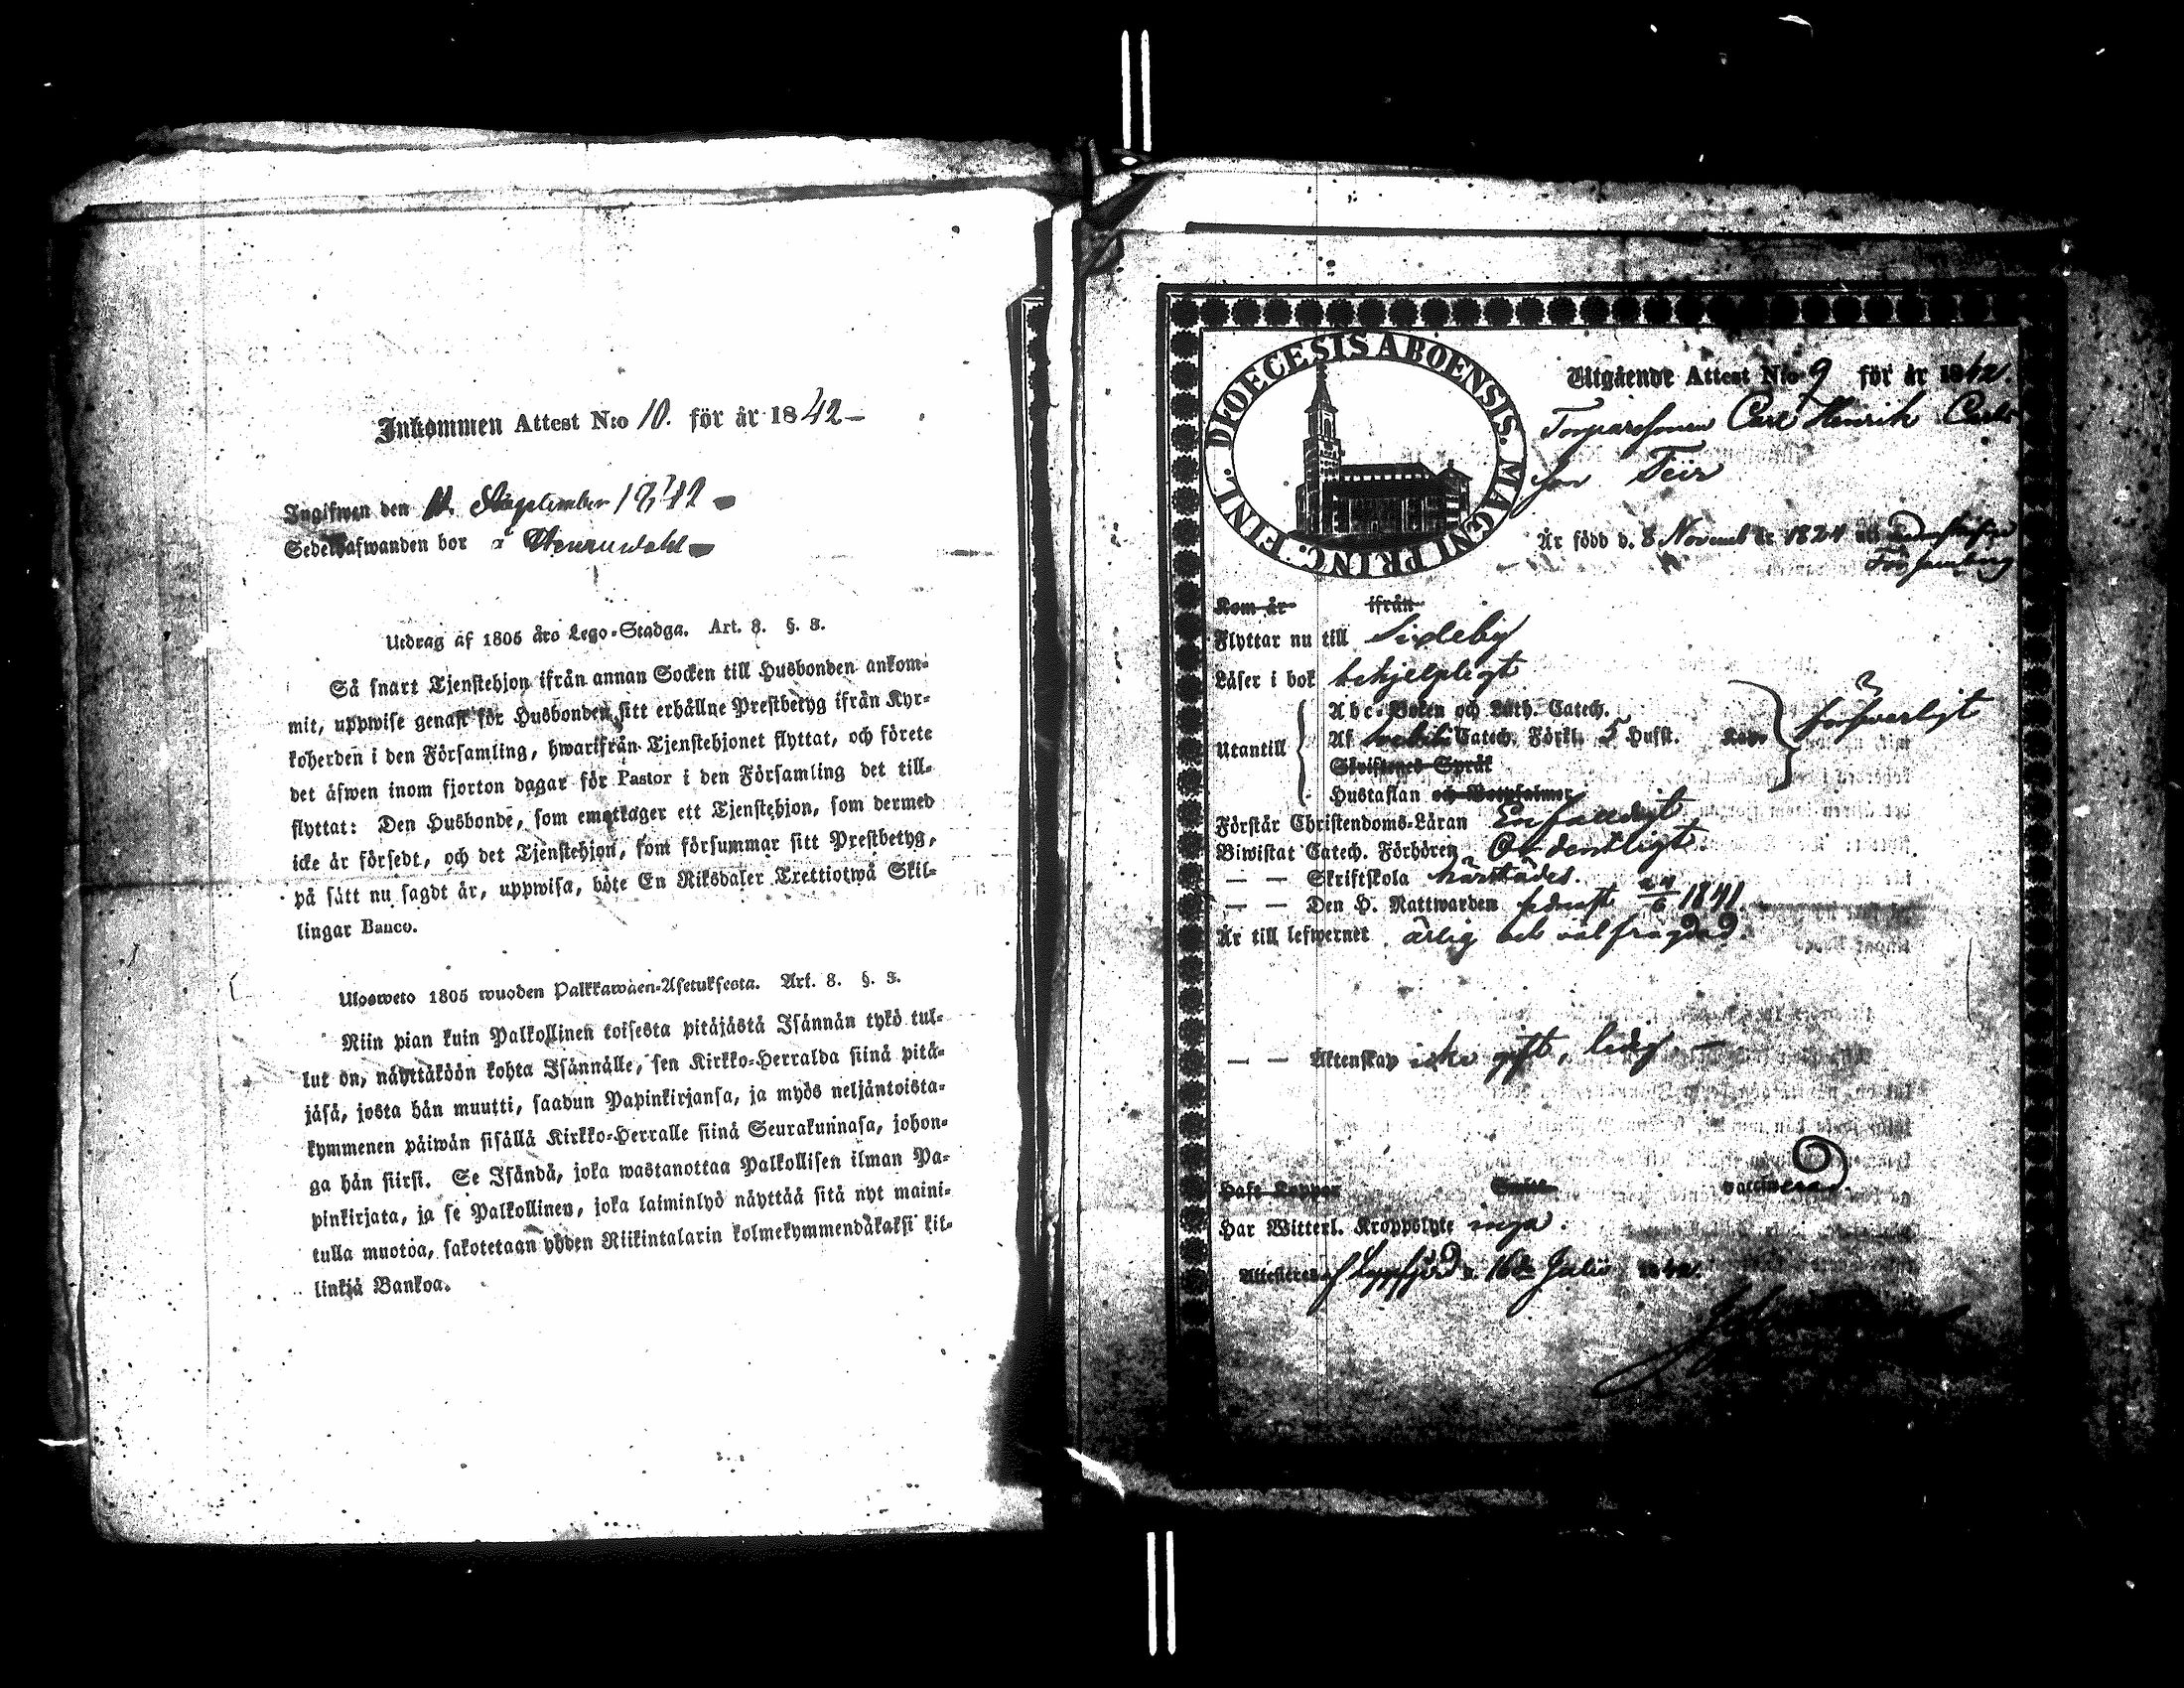 Inkommen Attest N:o 10. för år 1842 –
Ingifwen den 11 September 1842 –
Sedelhafwanden bor å
Utdrag af 1805 års Lego-Stadga. Art. 8. §. 8.
Så snart Tjenstehjon ifrån annan Socken till Husbonden ankom-
mit, uppwise genast för Husbonden sitt erhållne Prestbetyg ifrån Kyr-
koherden i den Församling, hwarifrån Tjenstehjonet flyttat, och förete
det äfwen inom fjorton dagar för Pastor i den Församling det till-
flyttat: Den Husbonde, som emottager ett Tjenstehjon, som dermed
icke är försedt, och det Tjenstehjon, som försummar sitt Prestbetyg,
på sätt nu sagdt är, uppwisa, böte En Riksdaler Trettiotwå Skil-
lingar Banco.
Ulosweto 1805 wuoden Palkkawäen-Asetuksesta. Art. 8. §. 8.
Niin pian kuin Palkollinen toisesta pitäjästä Isännän tykö tul-
lut on, näyttäköön kohta Isännälle, sen Kirkko-Herralda siinä pitä-
jäsä, josta hän muutti, saadun Papinkirjansa, ja myös neljäntoista-
kymmenen päiwän sisällä Kirkko-Herralle siinä Seurakunnasa, johon-
ga hän siirsi. Se Isändä, joka wastanottaa Palkollisen ilman Pa-
pinkirjata, ja se Palkollinen, joka laiminlyö näyttää sitä nyt maini-
tulla muotoa, sakotetaan yhden Riikintalarin kolmekymmendäkaksi kil-
linkiä Bankoa.
DIOECESIS ABOENSIS. MAGNI PRINC. FINL.
Utgående Attest N:o 9 för år 1842.
Torparesonen Carl Henrik Carls
son Teir
Är född d. 8 November 1824 uti
Församling
Kom år ifrån
Flyttar nu till Sideby
Läser i bok behjelpligt
Abc-Boken och Luth. Catech.
Utantill Af Catech. Förkl. 5 Hufst. försvarligt
Skriftenes Språk
Hustaflan och Botpsalmer
Förstår Christendoms-Läran Enfaldigt
Biwistat Catech. Förhören Ordentligt
— — Skriftskola härstädes.
— — Den H. Nattwarden sednast 24/6 1841
Är till lefwernet ärlig och välfrägdad.
— — Äktenskap icke gift, ledig. —
Haft Koppor vaccinerad.
Har Witterl. Kroppslyte inga.
Attesteras af Lappfjerd d. 16de Julii 1842.